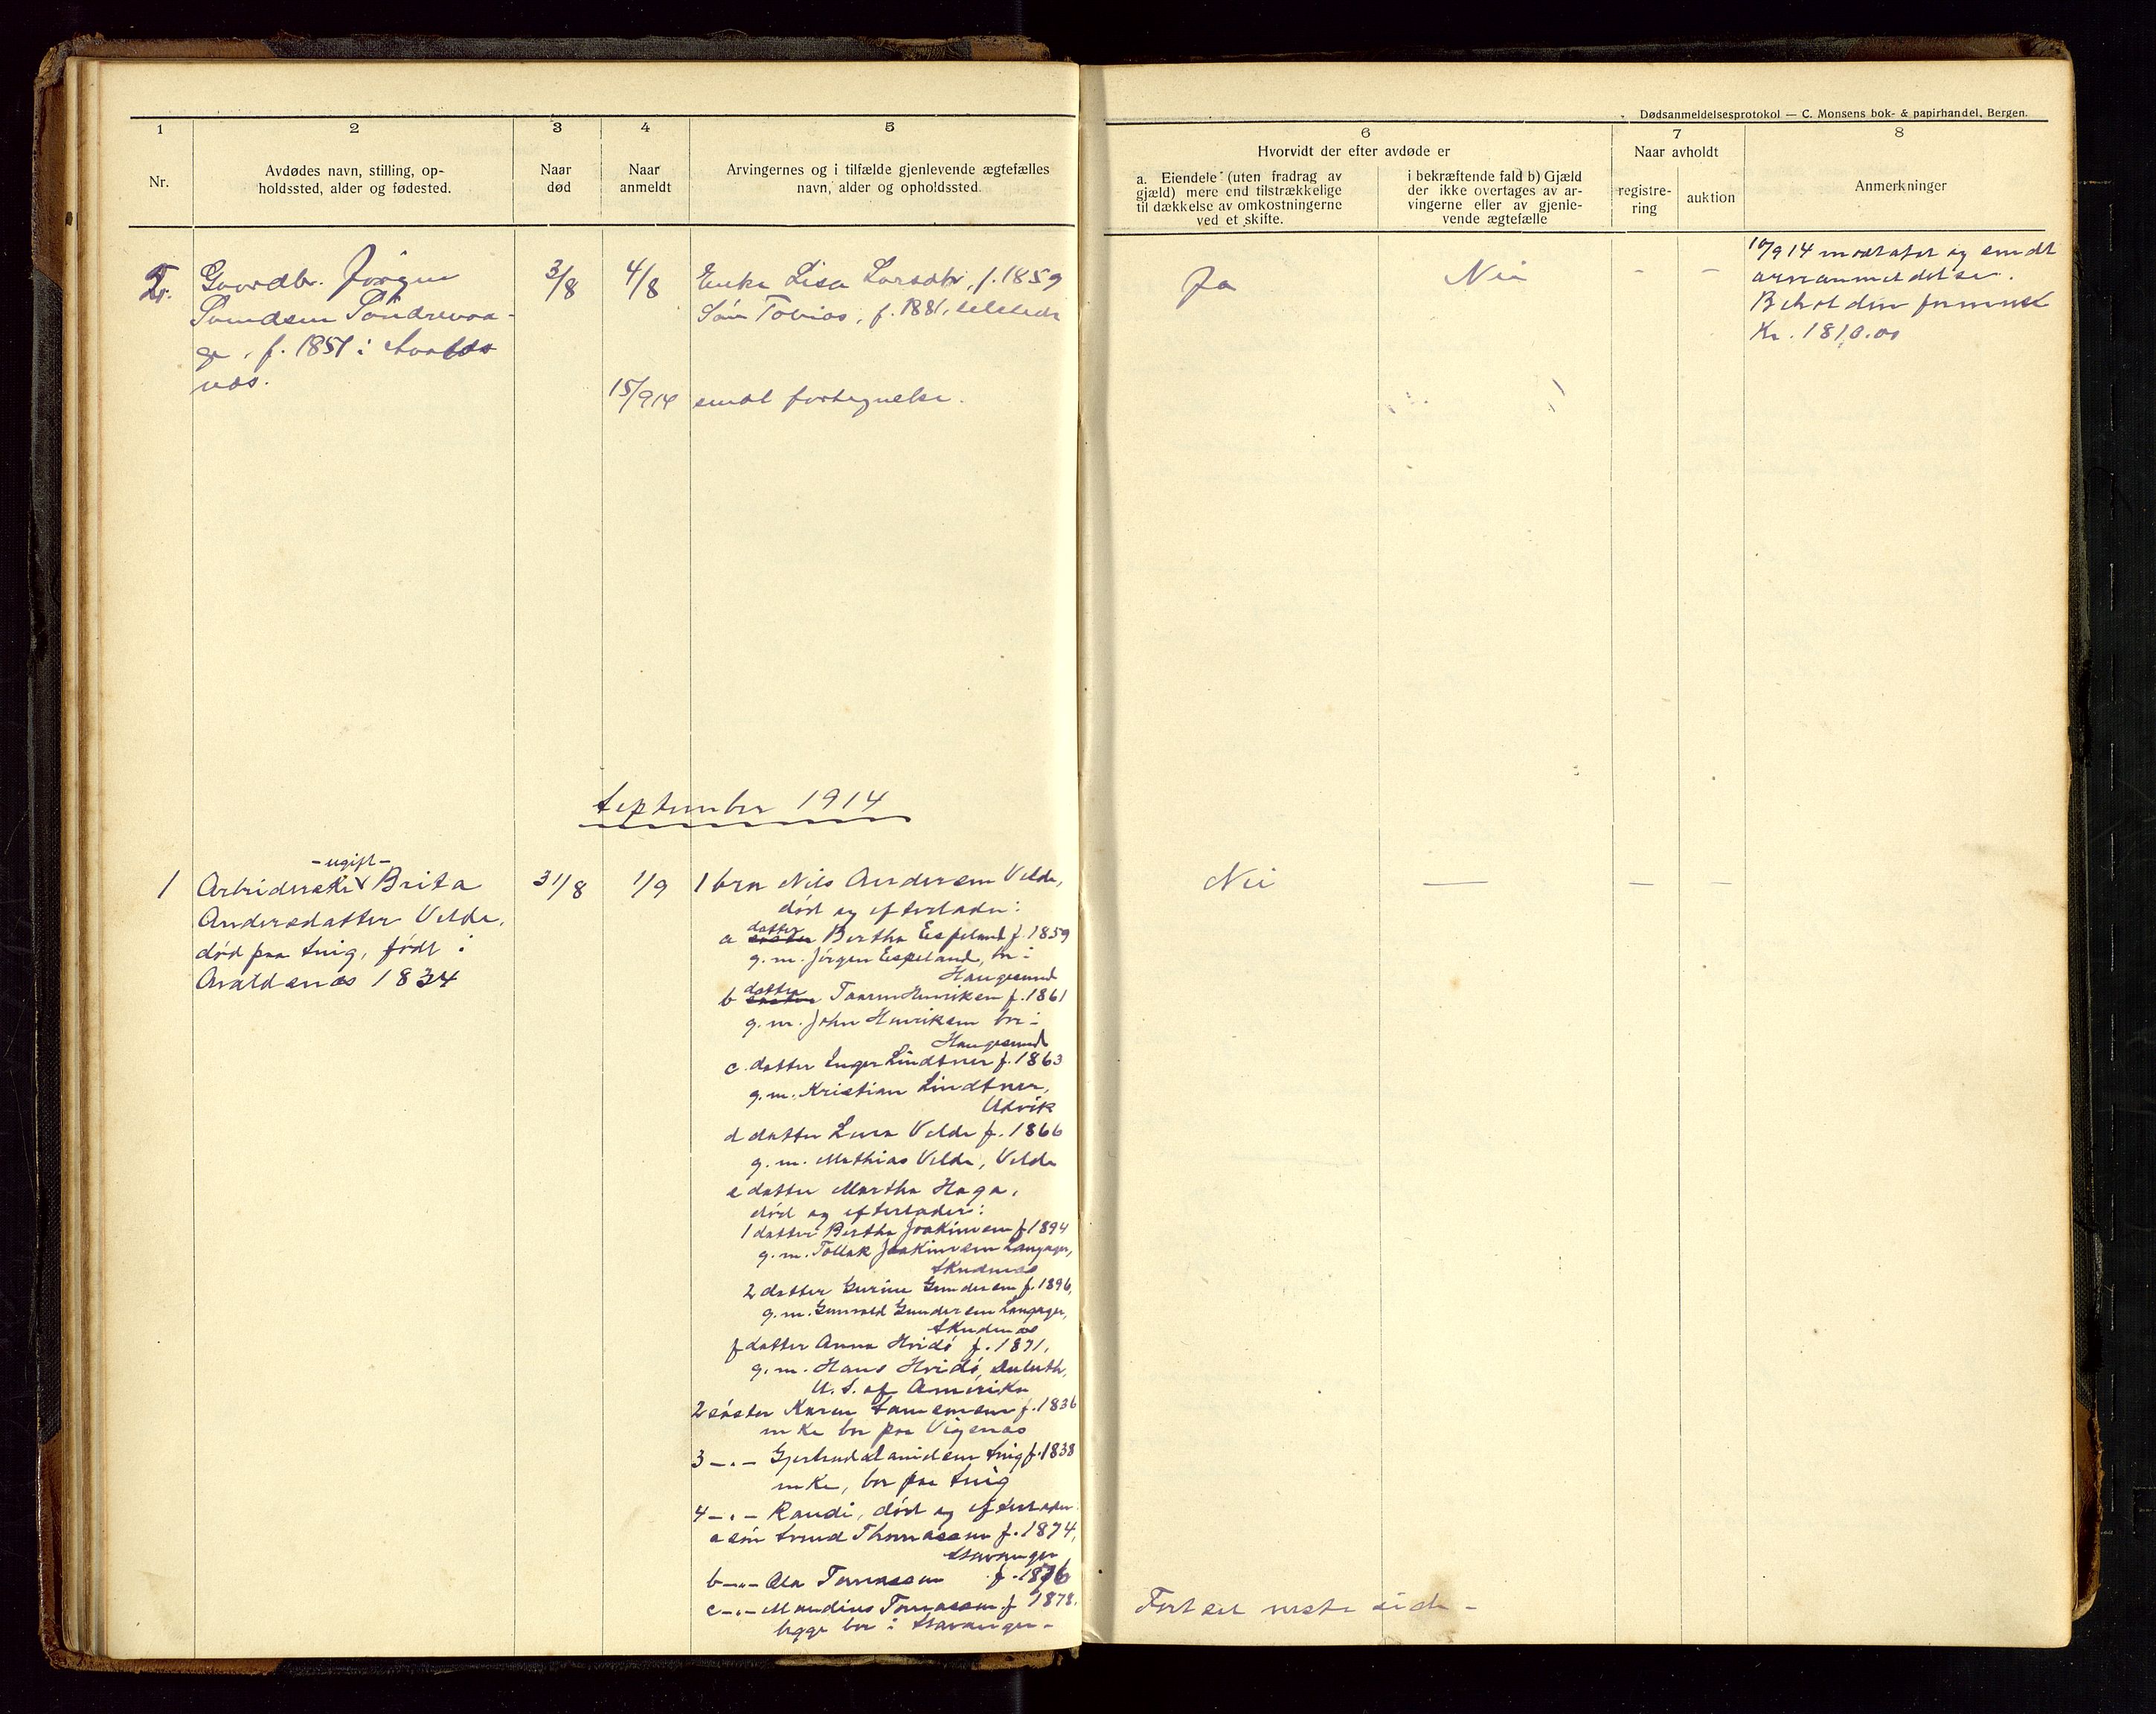 Dødsanmeldelsesprotokol — C. Monsens bok- & papirhandel, Bergen.
1 2 3 4 5 6 7 8
Nr.
Avdødes navn, stilling, op-
holdssted, alder og fødested.
Naar
død
Naar
anmeldt
Arvingernes og i tilfælde gjenlevende ægtefælles
navn, alder og opholdssted.
Hvorvidt der efter avdøde er
a. Eiendele (uten fradrag av
gjæld) mere end tilstrækkelige
til dækkelse av omkostningerne
ved et skifte.
i bekræftende fald b) Gjæld
der ikke overtages av ar-
vingerne eller av gjenle-
vende ægtefælle
Naar avholdt
registre-
ring
auktion
Anmerkninger
2.
Gaardbr. Jörgen
Svendsen Söndrevaa-
ge, f. 1851 i Avalds
nes.
3/8
4/8
Enke Lisa Larsdtr, f. 1859
Sön Tobias, f. 1881,
15/914 sendt fortegnelse.
Ja
Nei
- -
10/914 mottatt og sendt
arveanmeldelse.
Beholden formue
Kr. 1810.00
September 1914
1
-ugift-
Arbeiderske Brita
Andersdatter Velde,
död paa Snig, födt i
Avaldsnes 1834
31/8
1/9
1 bror Nils Andersen Velde,
död og efterlader:
a datter Bertha Espeland f. 1859
g.m. Jörgen Espeland, bor i
Haugesund
b datter Taaren Henriksen f. 1861
g.m. John Henriksen bor i
Haugesund
c. datter Inger Lindtner f. 1863
g.m. Kristian Lindtner,
Utvik
d datter Lava Velde f. 1866
g.m. Mathias Velde, Velde
e datter Martha Haga,
död og efterlader:
1 datter Bertha Joakimsen f. 1894
g.m. Tollak Joakimsen Langager,
Skudenes
2 datter Gurine Gundersen f. 1896,
g.m. Gunvald Gundersen Langager,
Skudenes
f datter Anna Hvidö f. 1871,
g.m. Hans Hvidö, Duluth,
U.S. of Amerika
2 söster Karen f. 1836
enke bor paa Vignes
3 -"- Gjertrud Snig f. 1838
enke, bor paa Snig
4 -"- Randi, död og efterlader
a sön Svend Thomassen f. 1874,
Stavanger
b -"- Ola Tomassen f. 1876
c -"- Mandius Tomassen f 1878.
begge bor i Stavanger -
Nei
— - -
Fortset neste side -